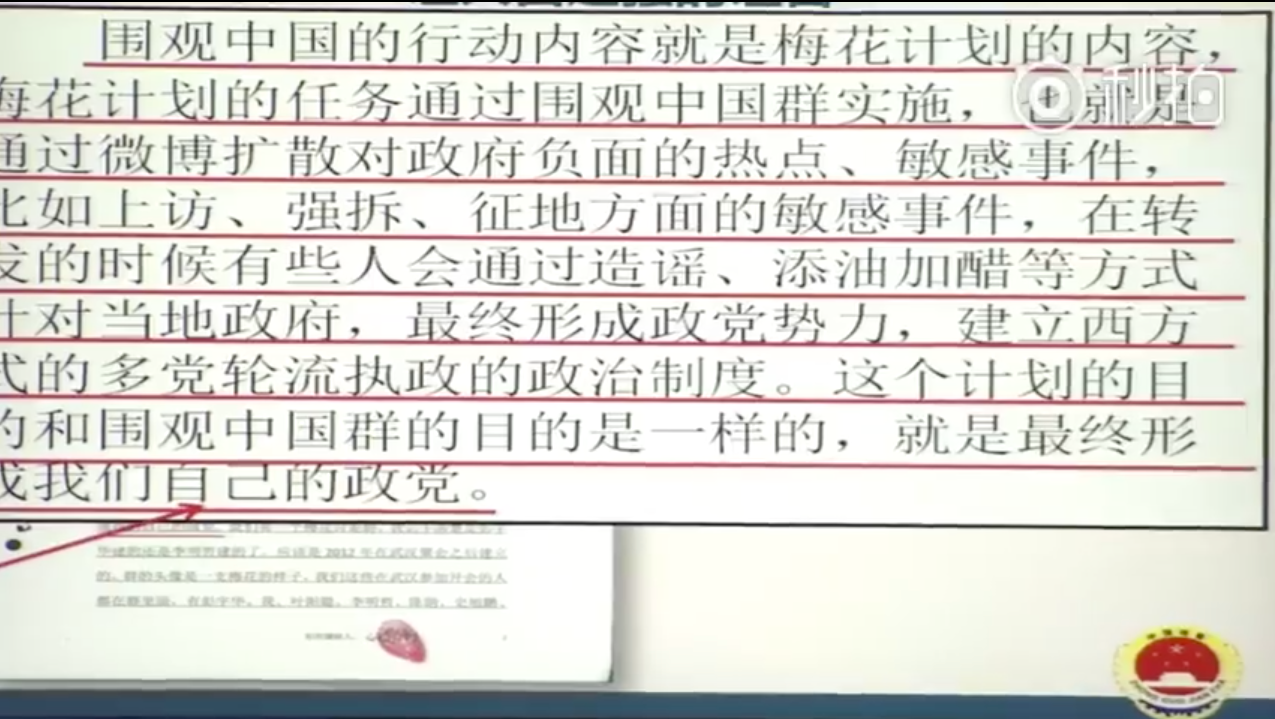 围观中国的行动内容就是梅花计划的内容，
秒拍
梅花计划的任务通过围观中国群实施，也就是
通过微博扩散对政府负面的热点、敏感事件，
比如上访、强拆、征地方面的敏感事件，在转
发的时候有些人会通过造谣、添油加醋等方式
针对当地政府，最终形成政党势力，建立西方
式的多党轮流执政的政治制度。这个计划的目
的和围观中国群的目的是一样的，就是最终形
成我们自己的政党。
华建的还是李明哲建的了。应该是 2012 年在武汉聚会之后建立
的。群的头像是一支梅花的样子。我们这些在武汉参加开会的人
都在群里面。有彭宇华、我、李明哲、